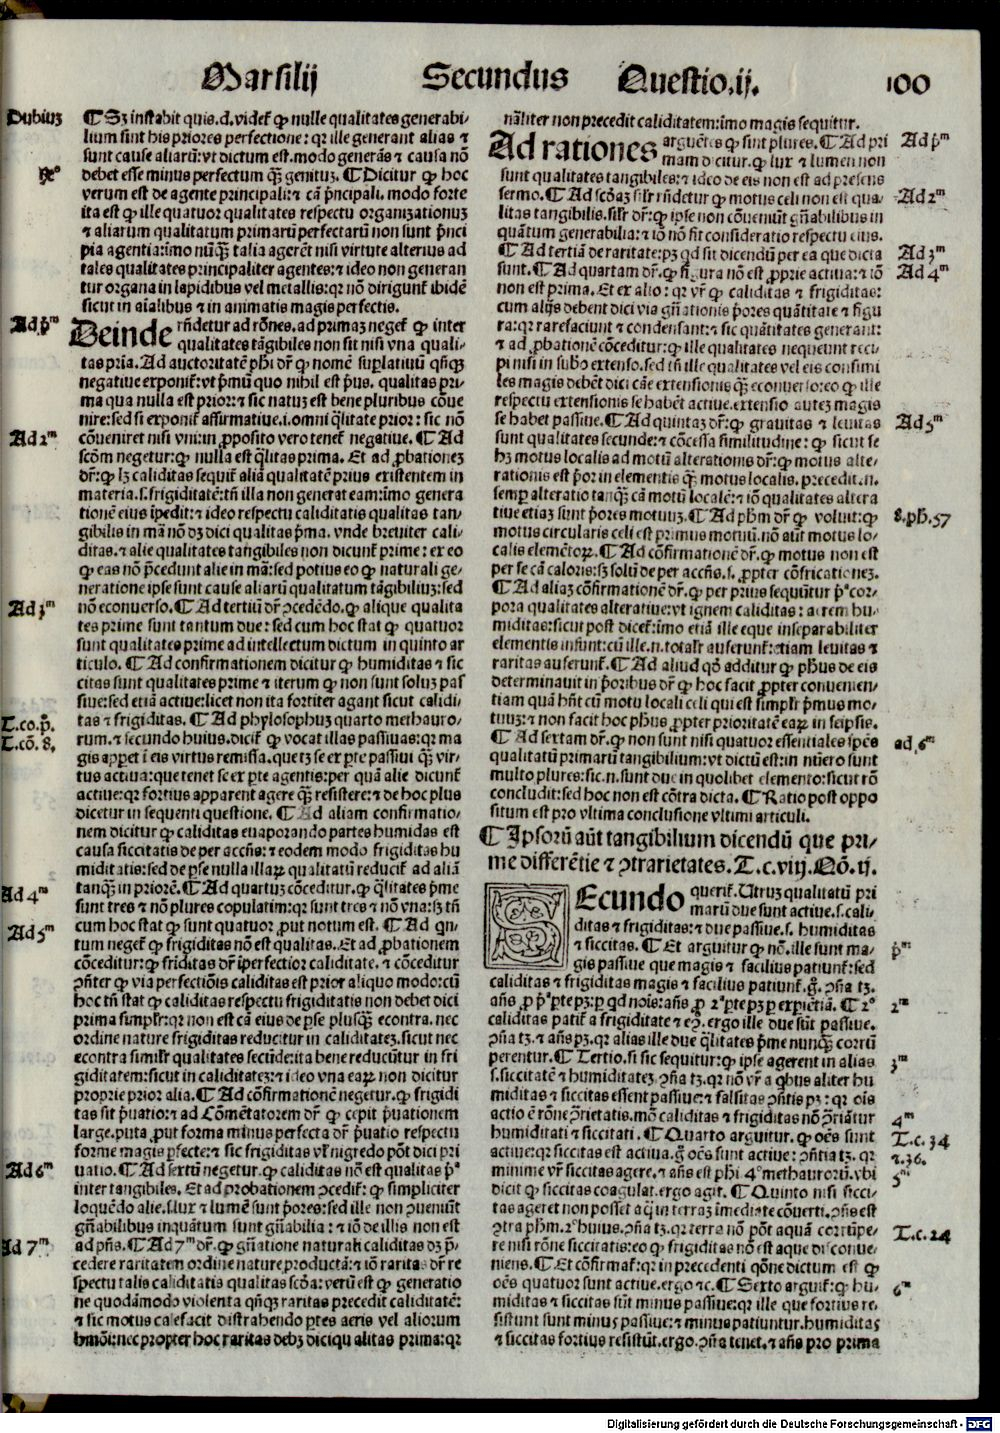 Marsilij Secundus Questio.ij. 100
Dubiuȝ
Rº
Ad pᵐ
Ad 2ᵐ
Ad 3ᵐ
T.co.p̄.
T.cō. 8.
Ad 4ᵐ
Ad 5ᵐ
Ad 6ᵐ
Ad 7ᵐ
¶ Sȝ instabit quis.d.videt̃ ꝙ nulle qualitates generabi/
lium sint his priores perfectione: qꝛ ille generant alias ⁊
sunt cause aliarū: vt dictum est. modo generās ⁊ causa nō
debet esse minus perfectum q̃ȝ genituȝ. ¶ Dicitur ꝙ hoc
verum est de agente principali: ⁊ cā p̄ncipali. modo forte
ita est ꝙ ille quatuor qualitates respectu organizationuȝ
⁊ aliarum qualitatum primarū perfectarū non sunt p̄nci
pia agentia: imo nūq̃ȝ talia agerēt nisi virtute alterius ad
tales qualitates principaliter agentes: ⁊ ideo non generan
tur organa in lapidibus vel metallis: qꝛ nō dirigunt̃ ibidē
sicut in aīalibus ⁊ in animatis magis perfectis.
Deinde rn̄detur ad rōnes. ad primaȝ neget̃ ꝙ inter
qualitates tāgibiles non sit nisi vna quali/
tas pria. Ad auctoritatē phi dr̄ ꝙ nomē suꝑlatiuū qn̄qȝ
negatiue exponit̃: vt p̄mū quo nihil est p̄us. qualitas pri/
ma qua nulla est prior: ⁊ sic natuȝ est bene pluribus cōue
nire: sed si exponit̃ affirmatiue.i.omni q̄litate prior: sic nō
cōueniret nisi vni: in ꝓposito vero tenet̃ negatiue. ¶ Ad
scōm negetur: ꝙ nulla est q̄litas prima. Et ad ꝓbationeȝ
dr̄: ꝙ lȝ caliditas sequit̃ aliā qualitatē prius existentem in
materia.s.frigiditatē: tn̄ illa non generat eam: imo genera
tionē eius īpedit: ⁊ ideo respectu caliditatis qualitas tan/
gibilis in mā nō dȝ dici qualitas p̄ma. vnde breuiter cali/
ditas. ⁊ alie qualitates tangibiles non dicunt̃ prime: ex eo
ꝙ eas nō p̄cedunt alie in mā: sed potius eo ꝙ naturali ge/
neratione ipse sunt cause aliarū qualitatum tāgibiliuȝ: sed
nō econuerso. ¶ Ad tertiū dr̄ ɔcedēdo. ꝙ alique qualita
tes prime sunt tantum due: sed cum hoc stat ꝙ quatuor
sunt qualitates prime ad intellectum dictum in quinto ar
ticulo. ¶ Ad confirmationem dicitur ꝙ humiditas ⁊ sic
citas sunt qualitates prime ⁊ iterum ꝙ non sunt soluȝ pas
siue: sed etiā actiue: licet non ita fortiter agant sicut calidi/
tas ⁊ frigiditas. ¶ Ad phylosophuȝ quarto methauro/
rum. ⁊ secundo huius. dicit̃ ꝙ vocat illas passiuas: qꝛ ma
gis appet ī eis virtus remissa. que tȝ se ex ꝑte passiui q̃ȝ vir/
tus actiua: que tenet se ex ꝑte agentis: per quā alie dicunt̃
actiue: qꝛ fortius apparent agere q̃ȝ resistere: ⁊ de hoc plus
dicetur in sequenti questione. ¶ Ad aliam confirmatio/
nem dicitur ꝙ caliditas euaporando partes humidas est
causa siccitatis de per accn̄s: ⁊ eodem modo frigiditas hu
miditatis: sed de ꝑse nulla illaꝝ qualitatū reducit̃ ad aliā
tanq̃ȝ in priorē. ¶ Ad quartuȝ cōceditur. ꝙ q̄litates p̄me
sunt tres ⁊ nō plures copulatim: qꝛ sunt tres ⁊ nō vna: sȝ tn̄
cum hoc stat ꝙ sunt quatuor ꝓut notum est. ¶ Ad qn̄/
tum neget̃ ꝙ frigiditas nō est qualitas. Et ad ꝓbationem
cōceditur: ꝙ friditas dr̄ īperfectior caliditate. ⁊ cōceditur
ɔn̄ter ꝙ via perfectiōis caliditas est prior aliquo modo: cū
hoc tn̄ stat ꝙ caliditas respectu frigiditatis non debet dici
prima simpl̄r: qꝛ non est cā eius de ꝑse plusq̃ȝ econtra. nec
ordine nature frigiditas reducitur in caliditateȝ. sicut nec
econtra simil̄r qualitates secūde: ita bene reducūtur in fri
giditatem: sicut in caliditateȝ: ⁊ ideo vna eaꝝ non dicitur
proprie prior alia. ¶ Ad cōfirmationē negetur. ꝙ frigidi
tas sit p̄uatio: ⁊ ad Cōmētatorem dr̄ ꝙ cepit p̄uationem
large. puta ꝓut forma minus perfecta dr̄ p̄uatio respectu
forme magis ꝑfecte: ⁊ sic frigiditas vl̄ nigredo pōt dici pri
uatio. ¶ Ad sextū negetur. ꝙ caliditas nō est qualitas pª
inter tangibiles. Et ad probationem ɔcedit̃: ꝙ simpliciter
loquēdo alie.s.lux ⁊ lumē sunt p̄ores: sed ille non ɔueniūt
gn̄abilibus inquātum sunt gn̄abilia: ⁊ iō de illis non est
ad pn̄s. ¶ Ad 7ᵐ dr̄. ꝙ gn̄atione naturali caliditas dȝ p̄/
cedere raritatem ordine nature ꝓductā: ⁊ iō raritas dr̄ re
spectu talis caliditatis qualitas scōa: verū est ꝙ generatio
ne quodāmodo violenta qn̄qȝ raritas precedit caliditatē:
⁊ sic motus calefacit distrahendo ꝑtes aeris vel aliorum
hmōi: nec propter hoc raritas debȝ dici qualitas prima: qꝛ
nāliter non precedit caliditatem: imo magis sequitur.
Ad rationes arguētes ꝙ sint plures. ¶ Ad pri
mam dicitur. ꝙ lux ⁊ lumen non
sunt qualitates tangibiles: ⁊ ideo de eis non est ad presens
sermo. ¶ Ad scōaȝ sil̄r rn̄detur ꝙ motus celi non est qua/
litas tangibilis. sil̄r dr̄: ꝙ ipse non cōueniūt gn̄abilibus in
quātum generabilia: ⁊ iō nō fit consideratio respectu eius.
¶ Ad tertiā de raritate: pȝ qd sit dicendū per ea que dicta
sunt. ¶ Ad quartam dr̄. ꝙ figura nō est ꝓprie actiua: ⁊ iō
non est prima. Et ex alio: qꝛ vr̄ ꝙ caliditas ⁊ frigiditas:
cum alijs debent dici via gn̄ationis p̄ores quātitate ⁊ figu
ra: qꝛ rarefaciunt ⁊ condensant: ⁊ sic quātitates generant:
⁊ ad ꝓbationē cōceditur: ꝙ ille qualitates nequeunt reci/
pi nisi in subo extenso. sed tn̄ ille qualitates vel eis consimi
les magis debēt dici cāe extensionis q̃ȝ econuerso: eo ꝙ ille
respectu extensionis se habēt actiue. extensio auteȝ magis
se habet passiue. ¶ Ad quintaȝ dr̄: ꝙ grauitas ⁊ leuitas
sunt qualitates secunde: ⁊ cōcessa similitudine: ꝙ sicut se
hȝ motus localis ad motū alterationis dr̄: ꝙ motus alte/
rationis est p̄or in elementis q̃ȝ motus localis. precedit .n.
semꝑ alteratio tanq̃ȝ cā motū localē: ⁊ iō qualitates altera
tiue etiaȝ sunt p̄ores motiuȝ. ¶ Ad phm dr̄ ꝙ voluit: ꝙ
motus circularis celi est primus motuū. nō aūt motus lo/
calis elemētoꝝ. ¶ Ad cōfirmationē dr̄. ꝙ motus non est
per se cā caloris: sȝ solū de per accn̄s.s. ꝓpter cōfricationeȝ.
¶ Ad aliaȝ cōfirmationē dr̄. ꝙ per prius sequūtur pª cor/
pora qualitates alteratiue: vt ignem caliditas: aerem hu/
miditas: sicut post dicet̃: imo etiā ille eque inseparabiliter
elementis insunt: cū ille .n. total̄r auferunt̃: etiam leuitas ⁊
raritas auferunt̃. ¶ Ad aliud qō additur ꝙ phus de eis
determinauit in p̄oribus dr̄ ꝙ hoc facit ꝓpter conuenien/
tiam quā hn̄t cū motu locali celi qui est simpl̄r p̄mus mo/
tuuȝ: ⁊ non facit hoc phus ꝓpter prioritatē eaꝝ in seipsis.
¶ Ad sextam dr̄. ꝙ non sunt nisi quatuor essentiales spēs
qualitatū primarū tangibilium: vt dictū est: in nūero sunt
multo plures: sic .n. sunt due in quolibet elemento: sicut rō
concludit: sed hoc non est cōtra dicta. ¶ Ratio post oppo
situm est pro vltima conclusione vltimi articuli.
¶ Ipsorū aūt tangibilium dicendū que pri/
me differētie ⁊ ɔtrarietates. T.c.viij. Qō.ij.
Secundo querit̃. Utruȝ qualitatū pri
marū due sunt actiue.s.cali/
ditas ⁊ frigiditas: ⁊ due passiue.s. humiditas
⁊ siccitas. ¶ Et arguitur ꝙ nō. ille sunt ma/
gis passiue que magis ⁊ facilius patiunt̃: sed
caliditas ⁊ frigiditas magis ⁊ facilius patiunt̃. g̊. ɔn̄a tȝ.
an̄s ꝓ pª ꝑte pȝ: ꝑ qd nois: an̄s ꝓ 2ª ꝑte pȝ ꝑ exꝑiētiā. ¶ 2º
caliditas patit̃ a frigiditate ⁊ eɔ̄. ergo ille due sūt passiue.
ɔn̄a tȝ. ⁊ an̄s pȝ. qꝛ alias ille due q̄litates p̄me nunq̃ȝ corrū
perentur. ¶ Tertio. si sic sequitur: ꝙ ipse agerent in alias
.s.siccitatē ⁊ humiditateȝ. ɔn̄a tȝ. qꝛ nō vr̄ a qbus aliter hu
miditas ⁊ siccitas essent passiue: ⁊ falsitas ɔn̄tis pȝ: qꝛ ois
actio ē rōne ɔrietatis. mō caliditas ⁊ frigiditas nō ɔriātur
humiditati ⁊ siccitati. ¶ Quarto arguitur. ꝙ oēs sunt
actiue: qꝛ siccitas est actiua. g̊ oēs sunt actiue: ɔn̄tia tȝ. qꝛ
minime vr̄ siccitas agere. ⁊ an̄s est phi 4º methaurorū. vbi
dicit ꝙ siccitas coagulat. ergo agit. ¶ Quinto nisi sicci/
tas ageret non posset aq̄ in terraȝ īmediate cōuerti. ɔn̄s est
ɔtra phm. 2º huius. ɔn̄a tȝ. qꝛ terra nō pōt aquā corrūpe/
re nisi rōne siccitatis: eo ꝙ frigiditas nō est aque discōue/
niens. ¶ Et cōfirmat̃: qꝛ in precedenti qōne dictum est ꝙ
oēs quatuor sunt actiue. ergo ⁊c. ¶ Sexto arguit̃: ꝙ hu/
miditas ⁊ siccitas sūt minus passiue: qꝛ ille que fortius re/
sistunt sunt minus passiue: ⁊ minus patiuntur. humiditas
⁊ siccitas fortius resistūt. ergo. ɔn̄a tenet. ⁊ an̄s pro prima
Ad pᵐ
Ad 2ᵐ
Ad 3ᵐ
Ad 4ᵐ
Ad 5ᵐ
8.ph.57
ad.6ᵐ
pᵐ
2ᵐ
3ᵐ
4ᵐ
T.c. 34
⁊.36.
5ᵐ
T.c.24
6ᵐ
Digitalisierung gefördert durch die Deutsche Forschungsgemeinschaft - DFG